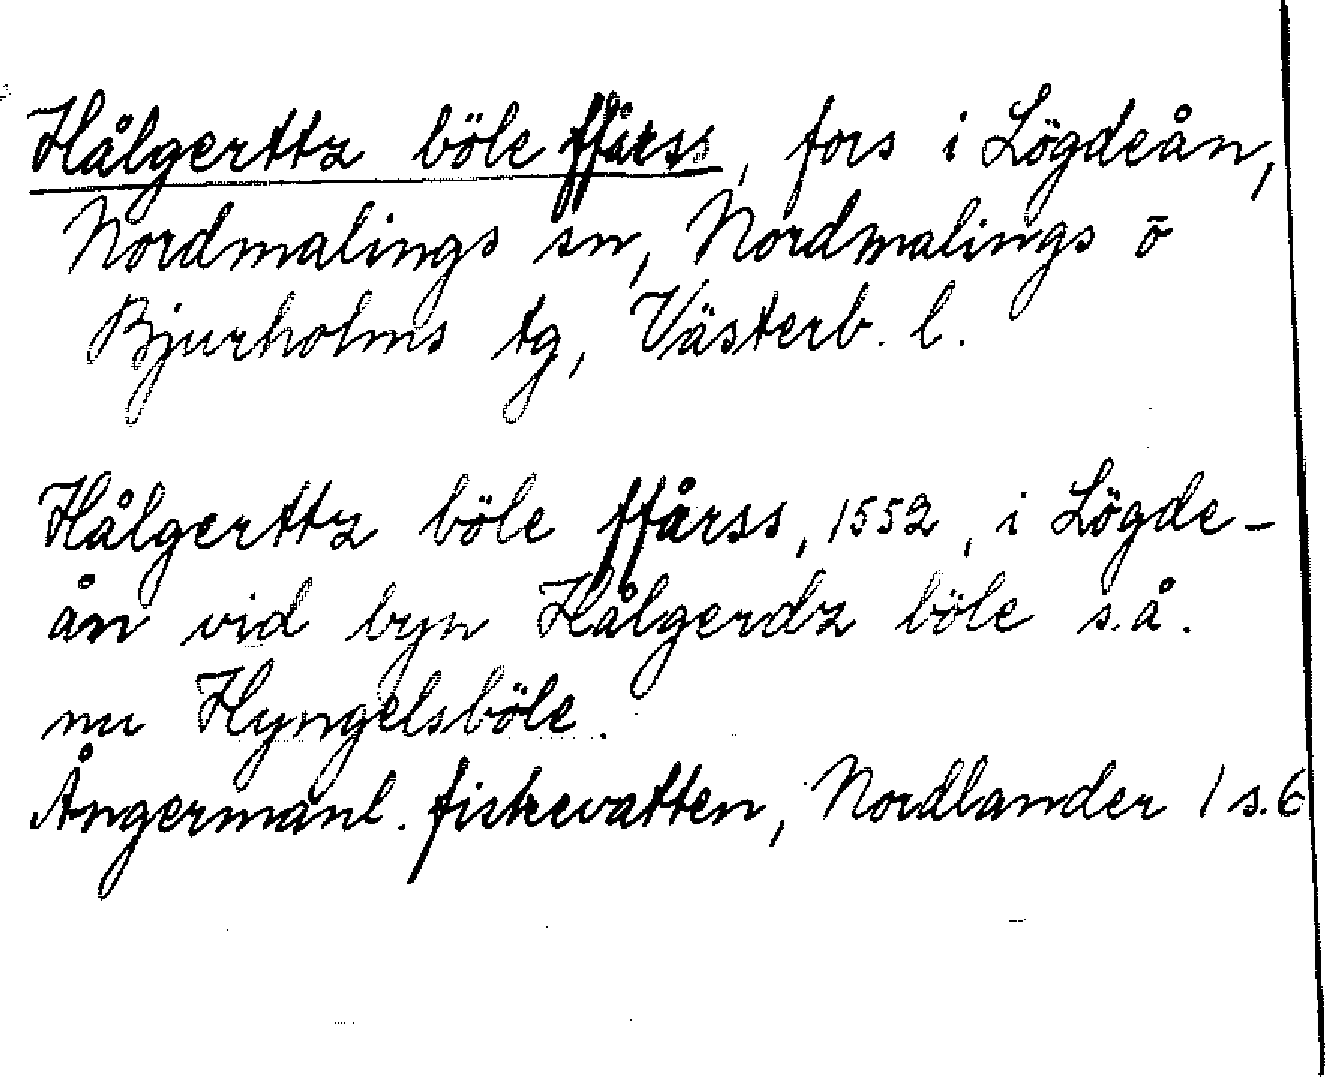 Hålgerttz böle ffårss, fors i Lögdeån,
Nordmalings sn, Nordmalings o
Bjurholms tg, Västerb. l.
Hålgerttz böle ffårss, 1552, i Lögde-
ån vid byn Hålgerdz böle s.å.
nu Hyngelsböle.
Ångermanl. fiskevatten, Nordlander 1 s.6